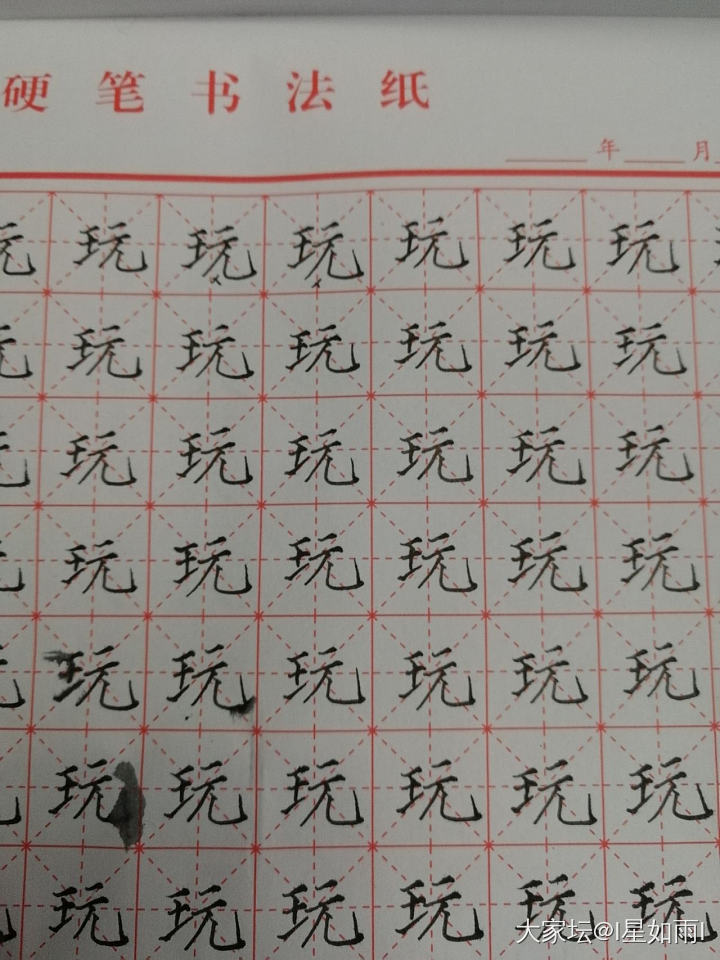 硬笔书法纸
年 月
玩 玩 玩 玩 玩 玩
玩 玩 玩 玩 玩 玩
玩 玩 玩 玩 玩 玩
玩 玩 玩 玩 玩 玩
玩 玩 玩 玩 玩 玩
玩 玩 玩 玩 玩 玩
玩 玩 玩 玩 玩 玩
大家坛@l星如雨l